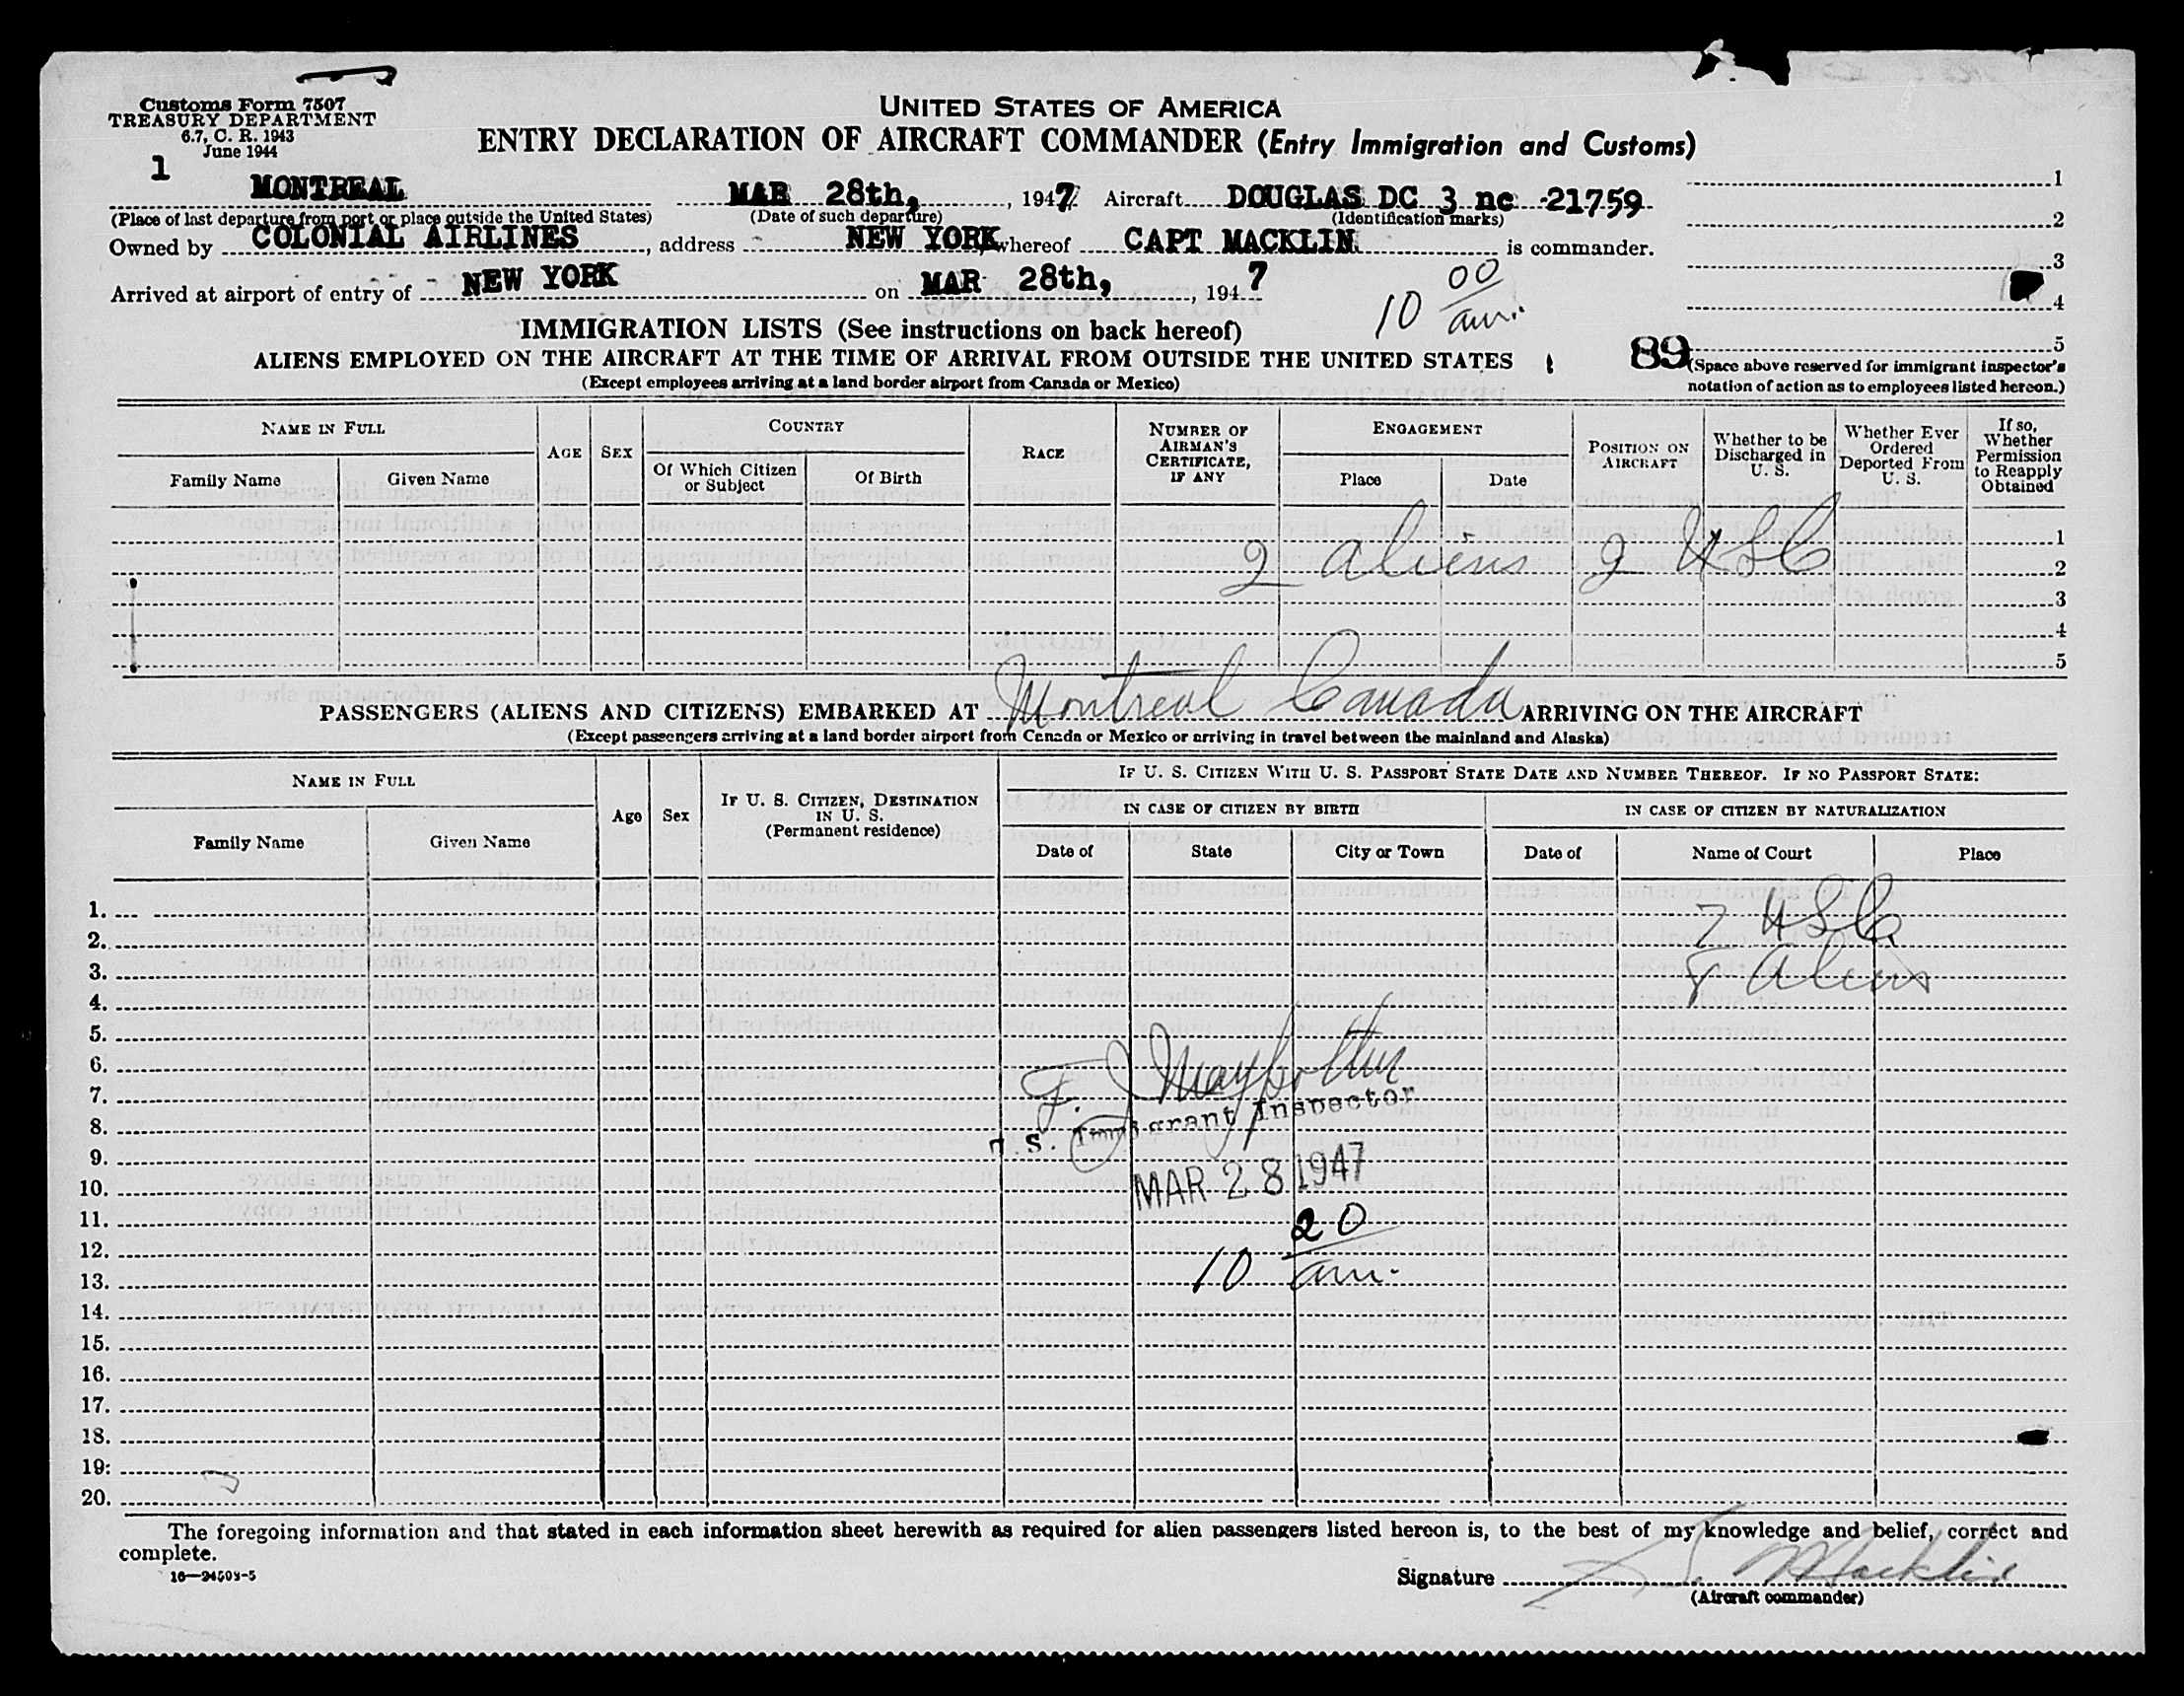 Customs Form 7507
TREASURY DEPARTMENT
6.7, C. R. 1943
June 1944
UNITED STATES OF AMERICA
ENTRY DECLARATION OF AIRCRAFT COMMANDER (Entry Immigration and Customs)
1
MONTREAL MAR 28th, , 1947 Aircraft DOUGLAS DC 3 nc -21759
(Place of last departure from port or place outside the United States) (Date of such departure) (Identification marks)
Owned by COLONIAL AIRLINES, address NEW YORK whereof CAPT MACKLIN is commander.
Arrived at airport of entry of NEW YORK on MAR 28th, , 1947
10 00 am.
1
2
3
4
5
IMMIGRATION LISTS (See instructions on back hereof)
ALIENS EMPLOYED ON THE AIRCRAFT AT THE TIME OF ARRIVAL FROM OUTSIDE THE UNITED STATES
(Except employees arriving at a land border airport from Canada or Mexico)
89
(Space above reserved for immigrant inspector's
notation of action as to employees listed hereon.)
NAME IN FULL
Family Name
Given Name
AGE
SEX
COUNTRY
Of Which Citizen
or Subject
Of Birth
RACE
NUMBER OF
AIRMAN'S
CERTIFICATE,
IF ANY
ENGAGEMENT
Place
Date
POSITION ON
AIRCRAFT
Whether to be
Discharged in
U. S.
Whether Ever
Ordered
Deported From
U. S.
If so,
Whether
Permission
to Reapply
Obtained
1
2 Aliens 2 USC
2
3
4
5
PASSENGERS (ALIENS AND CITIZENS) EMBARKED AT Montreal Canada ARRIVING ON THE AIRCRAFT
(Except passengers arriving at a land border airport from Canada or Mexico or arriving in travel between the mainland and Alaska)
NAME IN FULL
Family Name
Given Name
Age
Sex
IF U. S. CITIZEN, DESTINATION
IN U. S.
(Permanent residence)
IF U. S. CITIZEN WITH U. S. PASSPORT STATE DATE AND NUMBER THEREOF. IF NO PASSPORT STATE:
IN CASE OF CITIZEN BY BIRTH
IN CASE OF CITIZEN BY NATURALIZATION
Date of
State
City or Town
Date of
Name of Court
Place
1.
7 USC
2.
3.
8 Aliens
4.
5.
6.
F. J.
7.
8.
S. Immigrant Inspector
9.
10.
MAR 28 1947
11.
12.
10 20 am.
13.
14.
15.
16.
17.
18.
19.
20.
The foregoing information and that stated in each information sheet herewith as required for alien passengers listed hereon is, to the best of my knowledge and belief, correct and
complete.
16—24503-5
Signature Macklin
(Aircraft commander)